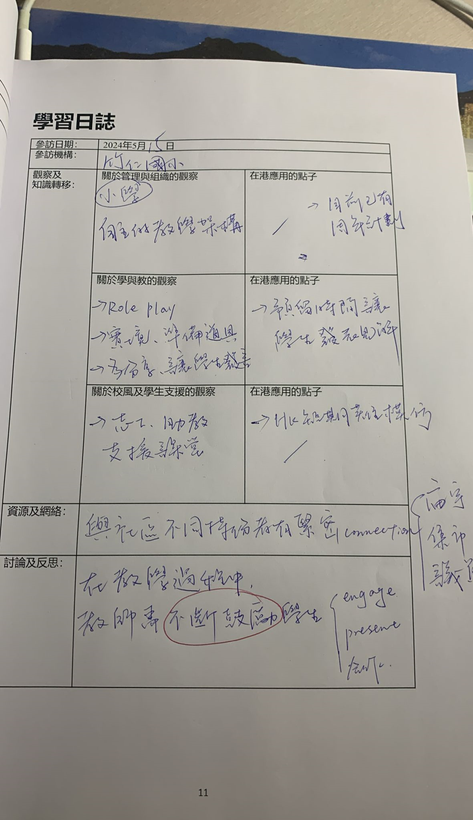 學習日誌
參訪日期： 2024年5月15日
參訪機構： 竹仁國小
觀察及
知識轉移：
關於管理與組織的觀察
小學
自主的教學架構
在港應用的點子
→ 目前已有
周年計劃
關於學與教的觀察
→ Role play
→ 實境、準備道具
→ 多分享、讓學生發言
在港應用的點子
→ 預留時間讓
學生發表見解
關於校風及學生支援的觀察
→ 志工、助教
支援課堂
在港應用的點子
→ HK
資源及網絡：
與社區不同持份者有緊密connection
廟宇
集市
義工
討論及反思：
在教學過程中，
教師需不斷鼓勵學生
engage
present
合作
11